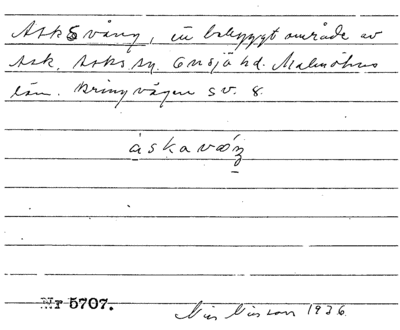 Asks vång, en bebyggt område av
Ask, Asks sn. Onsjö hd. Malmöhus
län. Kring vägen SV. 8.
åskavǽŋ
Nr 5707.
Nils Nilsson 1936.